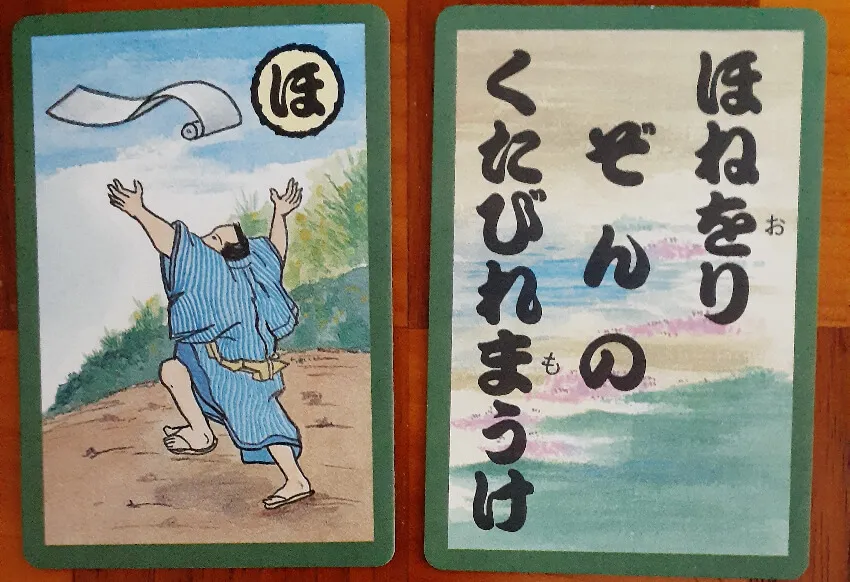 ほ
ほねをり
お
ぞんの
くたびれまうけ
も